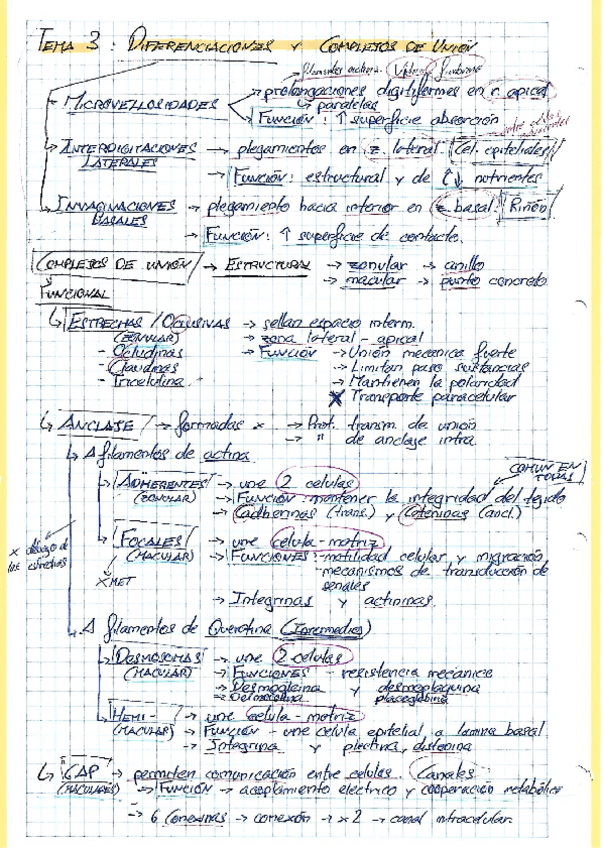 TEMA 3: DIFERENCIACIONES Y COMPLEJOS DE UNIÓN
filamentos actina. Villina y fimbrina
MICROVELLOSIDADES → prolongaciones digitiformes en r. apical
↳ paralelas
Función: ↑ superficie absorción
INTERDIGITACIONES LATERALES → plegamientos en z. lateral. Cel. epiteliales
→ Función: estructural y de ↑↓ nutrientes
INVAGINACIONES BASALES → plegamiento hacia interior en z basal. Riñón
→ Función: ↑ superficie de contacto.
COMPLEJOS DE UNIÓN → ESTRUCTURAL → zonular → anillo
→ macular → punto concreto
FUNCIONAL
↳ ESTRECHAS / OCLUSIVAS → sellan espacio interm.
(ZONULAR) → zona lateral - apical
- Ocludinas → Función → Unión mecanica fuerte
- Claudinas → Limitan paso sustancias
- Tricelulina → Mantienen la polaridad
X Transporte paracelular
↳ ANCLAJE → formadas x → Prot. transm. de unión
→ " de anclaje intra.
↳ A filamentos de actina
COMUN EN TODAS
↳ ADHERENTES → une 2 celulas
(ZONULAR) → Función: mantener la integridad del tejido
→ Cadherinas (trans.) y Cateninas (ancl.)
x debajo de las estrechas
↳ FOCALES → une celula-matriz
(MACULAR) → FUNCIONES: -motilidad celular y migración
XMET
-mecanismos de transducción de señales
→ Integrinas y actininas.
↳ A filamentos de Queratina (Intermedios)
↳ DESMOSOMAS → une 2 celulas
(MACULAR) → FUNCIONES - resistencia mecanica
→ Desmogleina y desmoplaquina
→ Desmocolina placoglobina
↳ HEMI- → une celula-matriz
(MACULAR) → Función - une celula epitelial a lamina basal
→ Integrina y plectina, distonina
↳ GAP → permiten comunicación entre celulas. Canales
(MACULARES) → Función → acoplamiento electrico y cooperación metabólica
→ 6 Conexinas → conexón → x2 → canal intracelular.